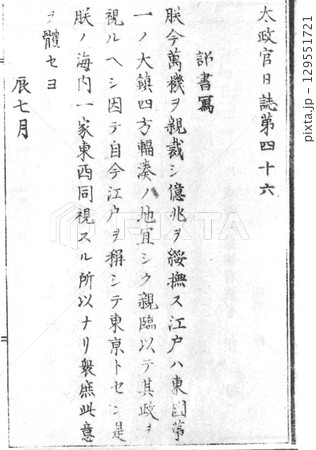 太政官日誌第四十六
詔書寫
朕今萬機ヲ親裁シ億兆ヲ綏撫ス江戸ハ東國第
一ノ大鎮四方輻湊ノ地宜シク親臨以テ其政ヲ
視ルヘシ因テ自今江戸ヲ稱シテ東亰トセン是
朕ノ海内一家東西同視スル所以ナリ衆庶此意
ヲ體セヨ
辰七月
PIXTA
pixta.jp - 129551721